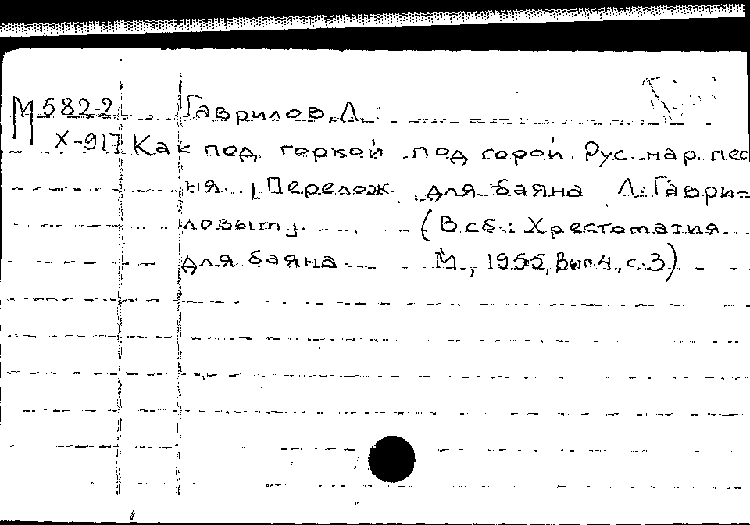 М 582-2 Гаврилов, Л.
Х-917 Как под горкой под горой. Рус. нар. пес
ня. [Перелож. для баяна Л. Гаври-
ловым]. (В сб.: Хрестоматия
для баяна. М., 1955, вып. 4, с. 3)